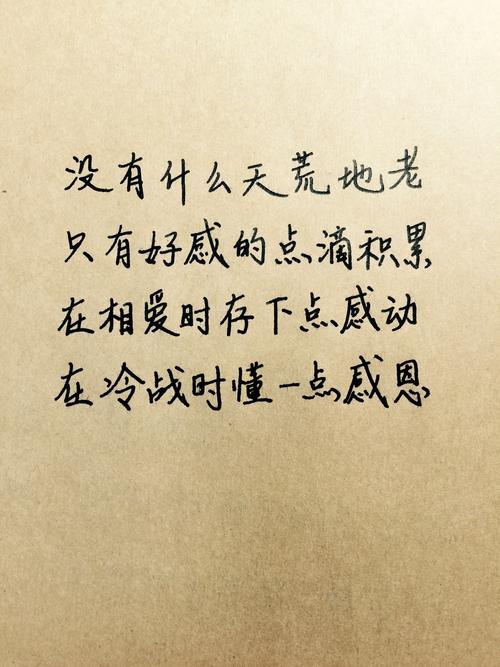 没有什么天荒地老
只有好感的点滴积累
在相爱时存下点感动
在冷战时懂一点感恩